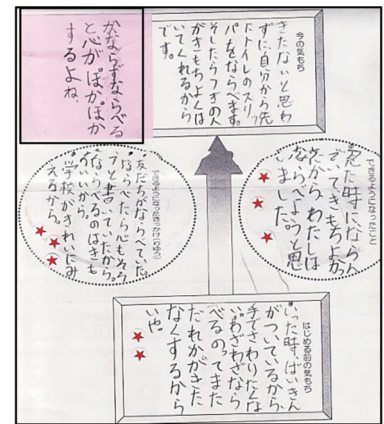 今の気もち
きたないと思わ
ずに自分から先
にトイレのスリッ
パをならべます。
そしたらつぎの人
がきもちよくは
いてくれるから
です。
かならずならべる
と心がぽかぽか
するよね。
できるようになったこと
見た時にならん
でてきもちよか
たからわたしは
ならべようと思
いました。
できるようになったきっかけ(りゆう)
友だちがならべていた
ならべたら心もそろ
うと書いていたから。
ならべるのはきも
ちいいから。
学校がきれいにみ
えるから。
はじめる前の気もち
いった時、ばいきん
がついているから
手でさわりたくな
い。わざわざなら
べるのってまた
だれかがきた
なくするから
いや。